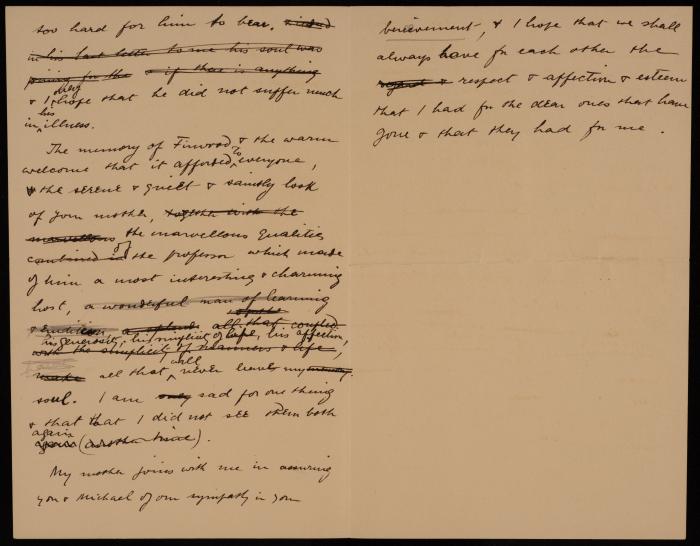 too hard for him to bear. 
in his last letter to me his soul was
pining for the & if there is anything
& I only hope that he did not suffer much
in his illness.
The memory of Finwood & the warm
welcome that it afforded to everyone,
& the serene & quiet & saintly look
of your mother, together with the
marvellous the marvellous qualities
combined in of the professor which made
of him a most interesting & charming
host, a wonderful man of learning
& erudition, all that coupled
his generosity, his simplicity of life, his affection,
with the simplicity of manners & life,
make all that will never leave my memory.
soul. I am only sad for one thing
& that that I did not see them both
again (another time).
My mother joins with me in assuring
you & Michael of our sympathy in your
bereavement, & I hope that we shall
always have for each other the
regard & respect & affection & esteem
that I had for the dear ones that have
gone & that they had for me.